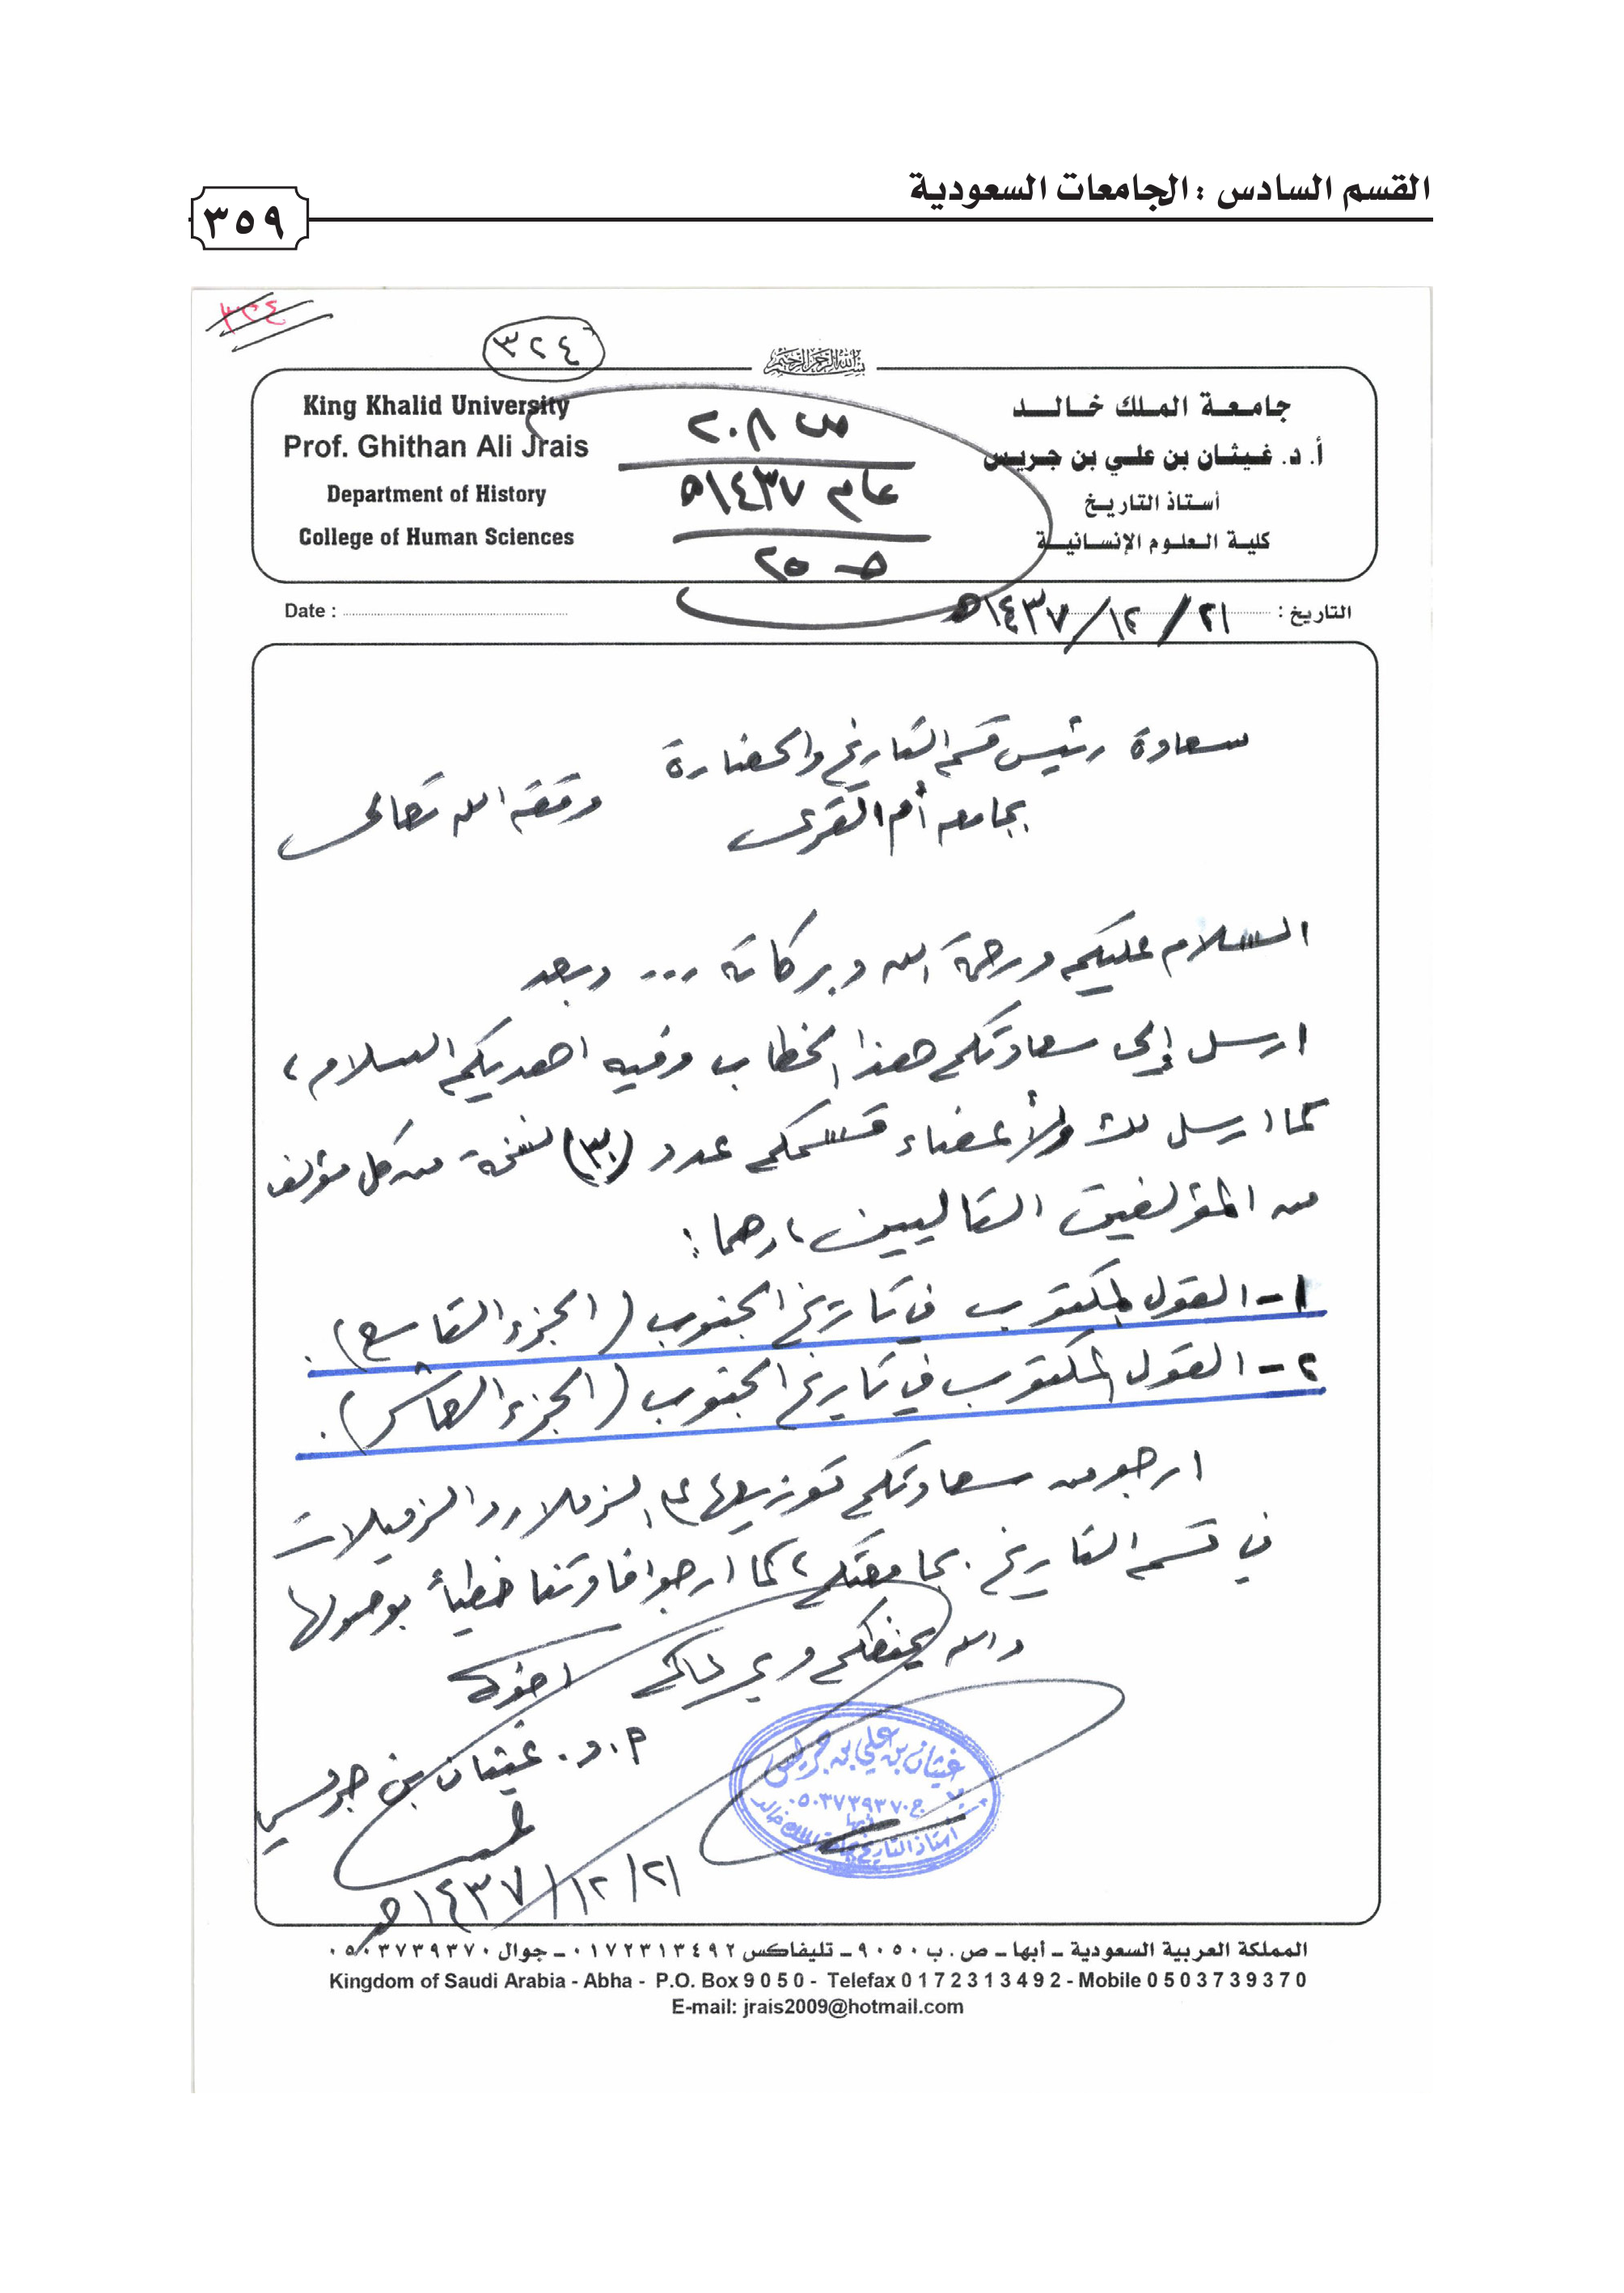 القسم السادس : الجامعات السعودية
٣٥٩
٣٢٤
٣٢٤
بسم الله الرحمن الرحيم
جامعة الملك خالد
أ. د. غيثان بن علي بن جريس
أستاذ التاريخ
كلية العلوم الإنسانية
King Khalid University
Prof. Ghithan Ali Jrais
Department of History
College of Human Sciences
س ٢٠٨
عام ١٤٣٧هـ
ص ٢٥
التاريخ : ٢١/ ١٢/ ١٤٣٧هـ
Date :
سعادة رئيس قسم التاريخ والحضارة
بجامعة أم القرى وفقه الله تعالى
السلام عليكم ورحمة الله وبركاته ... وبعد
ارسل إلى سعادتكم هذا الخطاب وفيه اهديكم السلام،
كما ارسل لك ولأعضاء قسمكم عدد (٣٠) نسخة من كل مؤلف
من المؤلفين التاليين، وهما :
١- القول المكتوب في تاريخ الجنوب (الجزء التاسع).
٢- القول المكتوب في تاريخ الجنوب (الجزء العاشر).
ارجو من سعادتكم توزيعها على الزملاء والزميلات
في قسم التاريخ بجامعتكم، كما ارجو افادتنا خطياً بوصولها
والله يحفظكم ويرعاكم اخوك
أ.د. غيثان بن جريس
٢١/ ١٢/ ١٤٣٧هـ
غيثان بن علي بن جريس
ج ٠٥٠٣٧٣٩٣٧٠
أبها
استاذ التاريخ بجامعة الملك خالد
المملكة العربية السعودية ـ أبها ـ ص . ب ٩٠٥٠ ـ تليفاكس ٠١٧٢٣١٣٤٩٢ ـ جوال ٠٥٠٣٧٣٩٣٧٠
Kingdom of Saudi Arabia - Abha - P.O. Box 9050 - Telefax 0172313492 - Mobile 0503739370
E-mail: jrais2009@hotmail.com